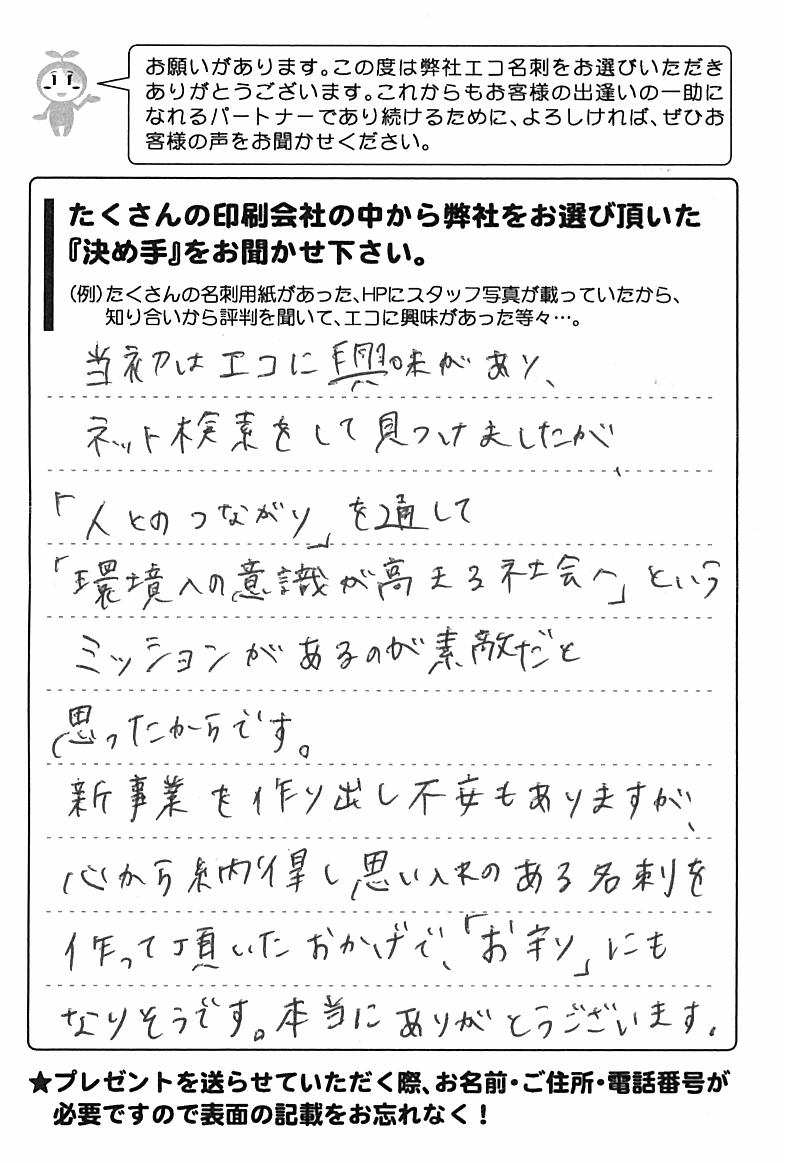 お願いがあります。この度は弊社エコ名刺をお選びいただき
ありがとうございます。これからもお客様の出逢いの一助に
なれるパートナーであり続けるために、よろしければ、ぜひお
客様の声をお聞かせください。
たくさんの印刷会社の中から弊社をお選び頂いた
『決め手』をお聞かせ下さい。
（例）たくさんの名刺用紙があった、HPにスタッフ写真が載っていたから、
知り合いから評判を聞いて、エコに興味があった等々…。
当初はエコに興味があり、
ネット検索をして見つけましたが、
「人とのつながり」を通して
「環境への意識が高まる社会へ」という
ミッションがあるのが素敵だと
思ったからです。
新事業を作り出し不安もありますが、
心から納得し思い入れのある名刺を
作って頂いたおかげで、「お守り」にも
なりそうです。本当にありがとうございます。
★プレゼントを送らせていただく際、お名前・ご住所・電話番号が
必要ですので表面の記載をお忘れなく！